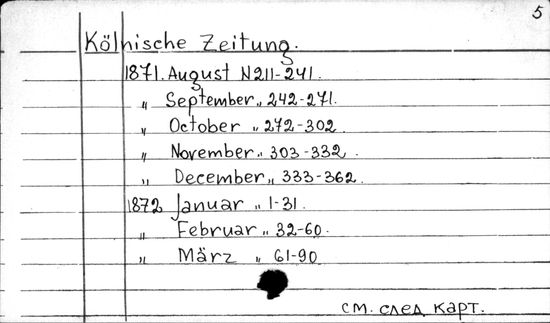 5
Kölnische Zeitung.
1871. August N 211-241.
" September " 242-271.
" October " 272-302.
" November " 303-332.
" December " 333-362.
1872 Januar " 1-31.
" Februar " 32-60.
" März " 61-90
см. след. карт.